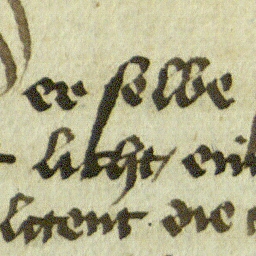 er selbe
licht / ein
litent die